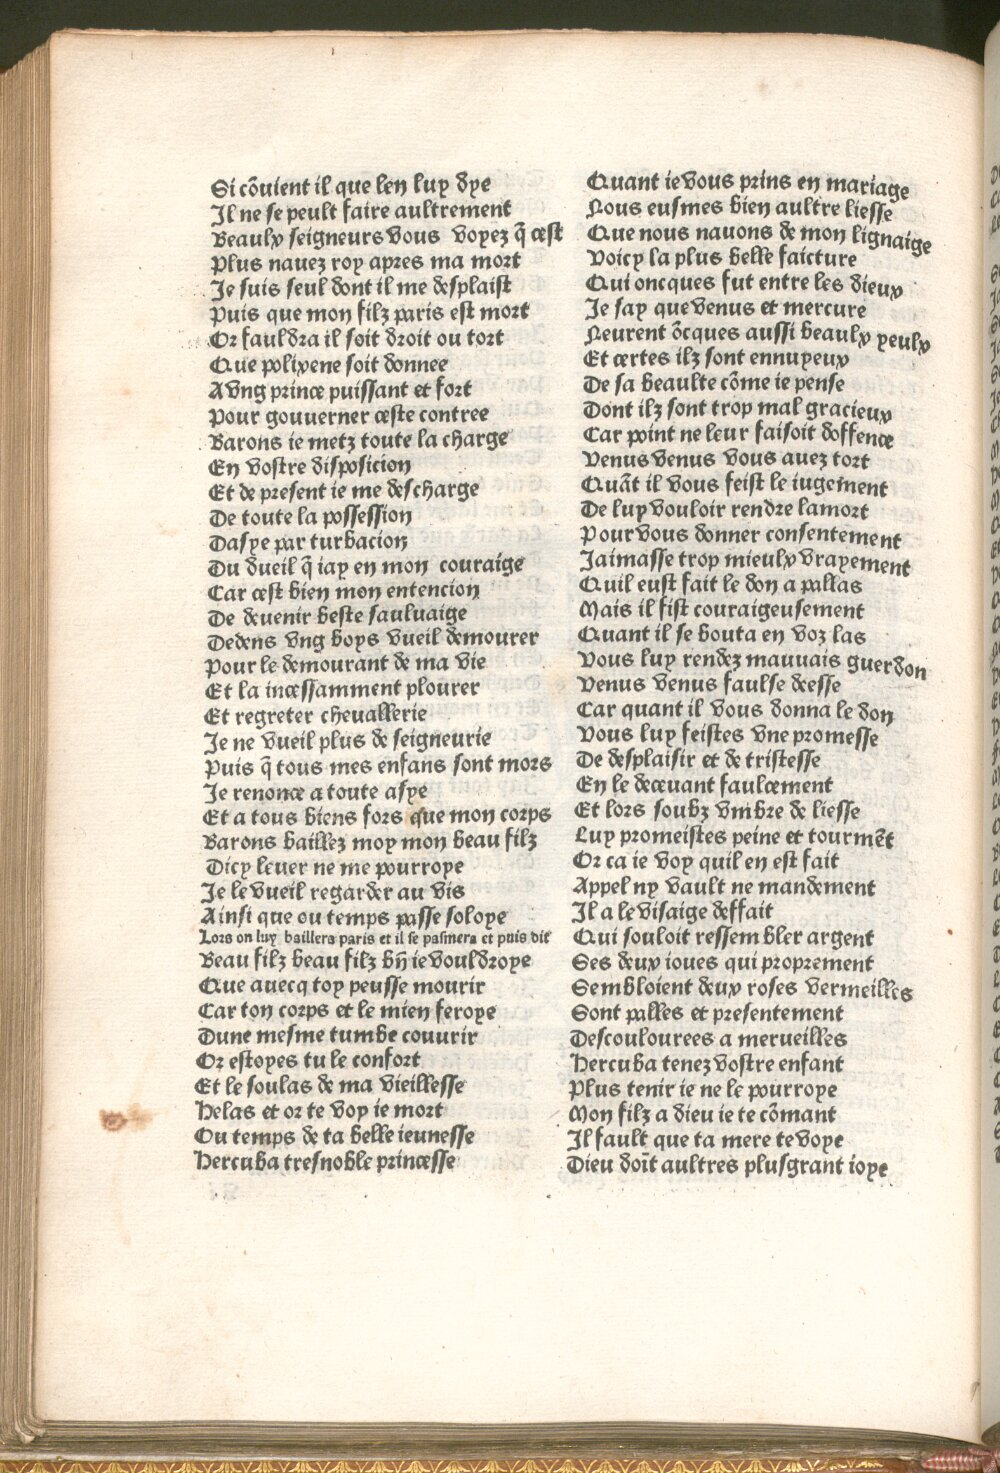 Si cõuient il que len luy dye
Il ne se peult faire aultrement
Beaulx seigneurs vous voyez q̃ cest
Plus nauez roy apres ma mort
Je suis seul dont il me desplaist
Puis que mon filz paris est mort
Or fauldra il soit droit ou tort
Que polixene soit donnee
A vng prince puissant et fort
Pour gouuerner ceste contree
Barons ie metz toute la charge
En vostre disposicion
Et de present ie me descharge
De toute la possession
Dasye par turbacion
Du dueil q̃ iay en mon couraige
Car cest bien mon entencion
De deuenir beste sauluaige
Dedens vng boys vueil demourer
Pour le demourant de ma vie
Et la incessamment plourer
Et regreter cheuallerie
Je ne vueil plus de seigneurie
Puis q̃ tous mes enfans sont mors
Je renonce a toute asye
Et a tous biens fors que mon corps
Barons baillez moy mon beau filz
Dicy leuer ne me pourroye
Je le vueil regarder au vis
Ainsi que ou temps passe soloye
Lors on luy baillera paris et il se pasmera et puis dit
Beau filz beau filz bñ ie vouldroye
Que auecq toy peusse mourir
Car ton corps et le mien feroye
Dune mesme tumbe couurir
Or estoyes tu le confort
Et le soulas de ma vieillesse
Helas et or te voy ie mort
Ou temps de ta belle ieunesse
Hercuba tresnoble princesse
Quant ie vous prins en mariage
Nous eusmes bien aultre liesse
Que nous nauons de mon lignaige
Voicy la plus belle faicture
Qui oncques fut entre les dieux
Je say que venus et mercure
Neurent õcques aussi beaulx yeulx
Et certes ilz sont ennuyeux
De sa beaulte cõme ie pense
Dont ilz sont trop mal gracieux
Car point ne leur faisoit doffence
Venus venus vous auez tort
Quãt il vous feist le iugement
De luy vouloir rendre lamort
Pour vous donner consentement
Jaimasse trop mieulx vrayement
Quil eust fait le don a pallas
Mais il fist couraigeusement
Quant il se bouta en voz las
Vous luy rendez mauuais guerdon
Venus venus faulse deesse
Car quant il vous donna le don
Vous luy feistes vne promesse
De desplaisir et de tristesse
En le deceuant faulcement
Et lors soubz vmbre de liesse
Luy promeistes peine et tourmẽt
Or ca ie voy quil en est fait
Appel ny vault ne mandement
Il a le visaige deffait
Qui souloit ressembler argent
Ses deux ioues qui proprement
Sembloient deux roses vermeilles
Sont palles et presentement
Descoulourees a merueilles
Hercuba tenez vostre enfant
Plus tenir ie ne le pourroye
Mon filz a dieu ie te cõmant
Il fault que ta mere te voye
Dieu doĩt aultres plusgrant ioye